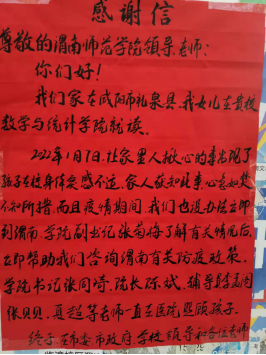 感谢信
尊敬的渭南师范学院领导、老师：
你们好！
我们家在咸阳市礼泉县，我女儿在贵校
数学与统计学院就读。
2022年1月7日，让家里人揪心的事出现了
孩子在校身体突感不适，家人获知此事心急如焚
不知所措，而且疫情期间我们也没办法立即
到渭南，学院副书记张菊梅了解有关情况后，
立即帮助我们咨询渭南有关防疫政策。
学院书记张同琦、院长陈斌、辅导员
张贝贝、超等老师一直在医院照顾孩子。
终于在市委市政府、学校领导和各位老师